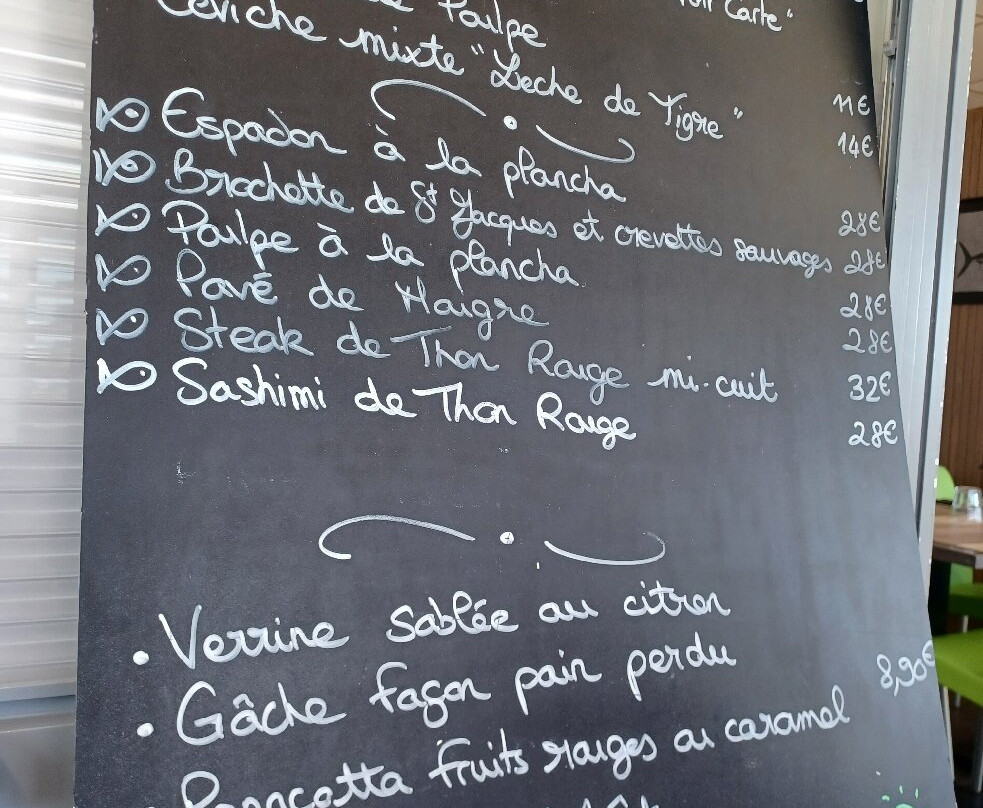 Poulpe
voir Carte"
Ceviche mixte "Leche de Tigre" 11€
14€
Espadon à la plancha 28€
Brochette de St Jacques et crevettes sauvages 28€
Poulpe à la plancha 28€
Pavé de Maigre 28€
Steak de Thon Rouge mi-cuit 32€
Sashimi de Thon Rouge 28€
• Verrine sablée au citron
• Gâche façon pain perdu 8,90€
Panacotta fruits rouges ou caramel